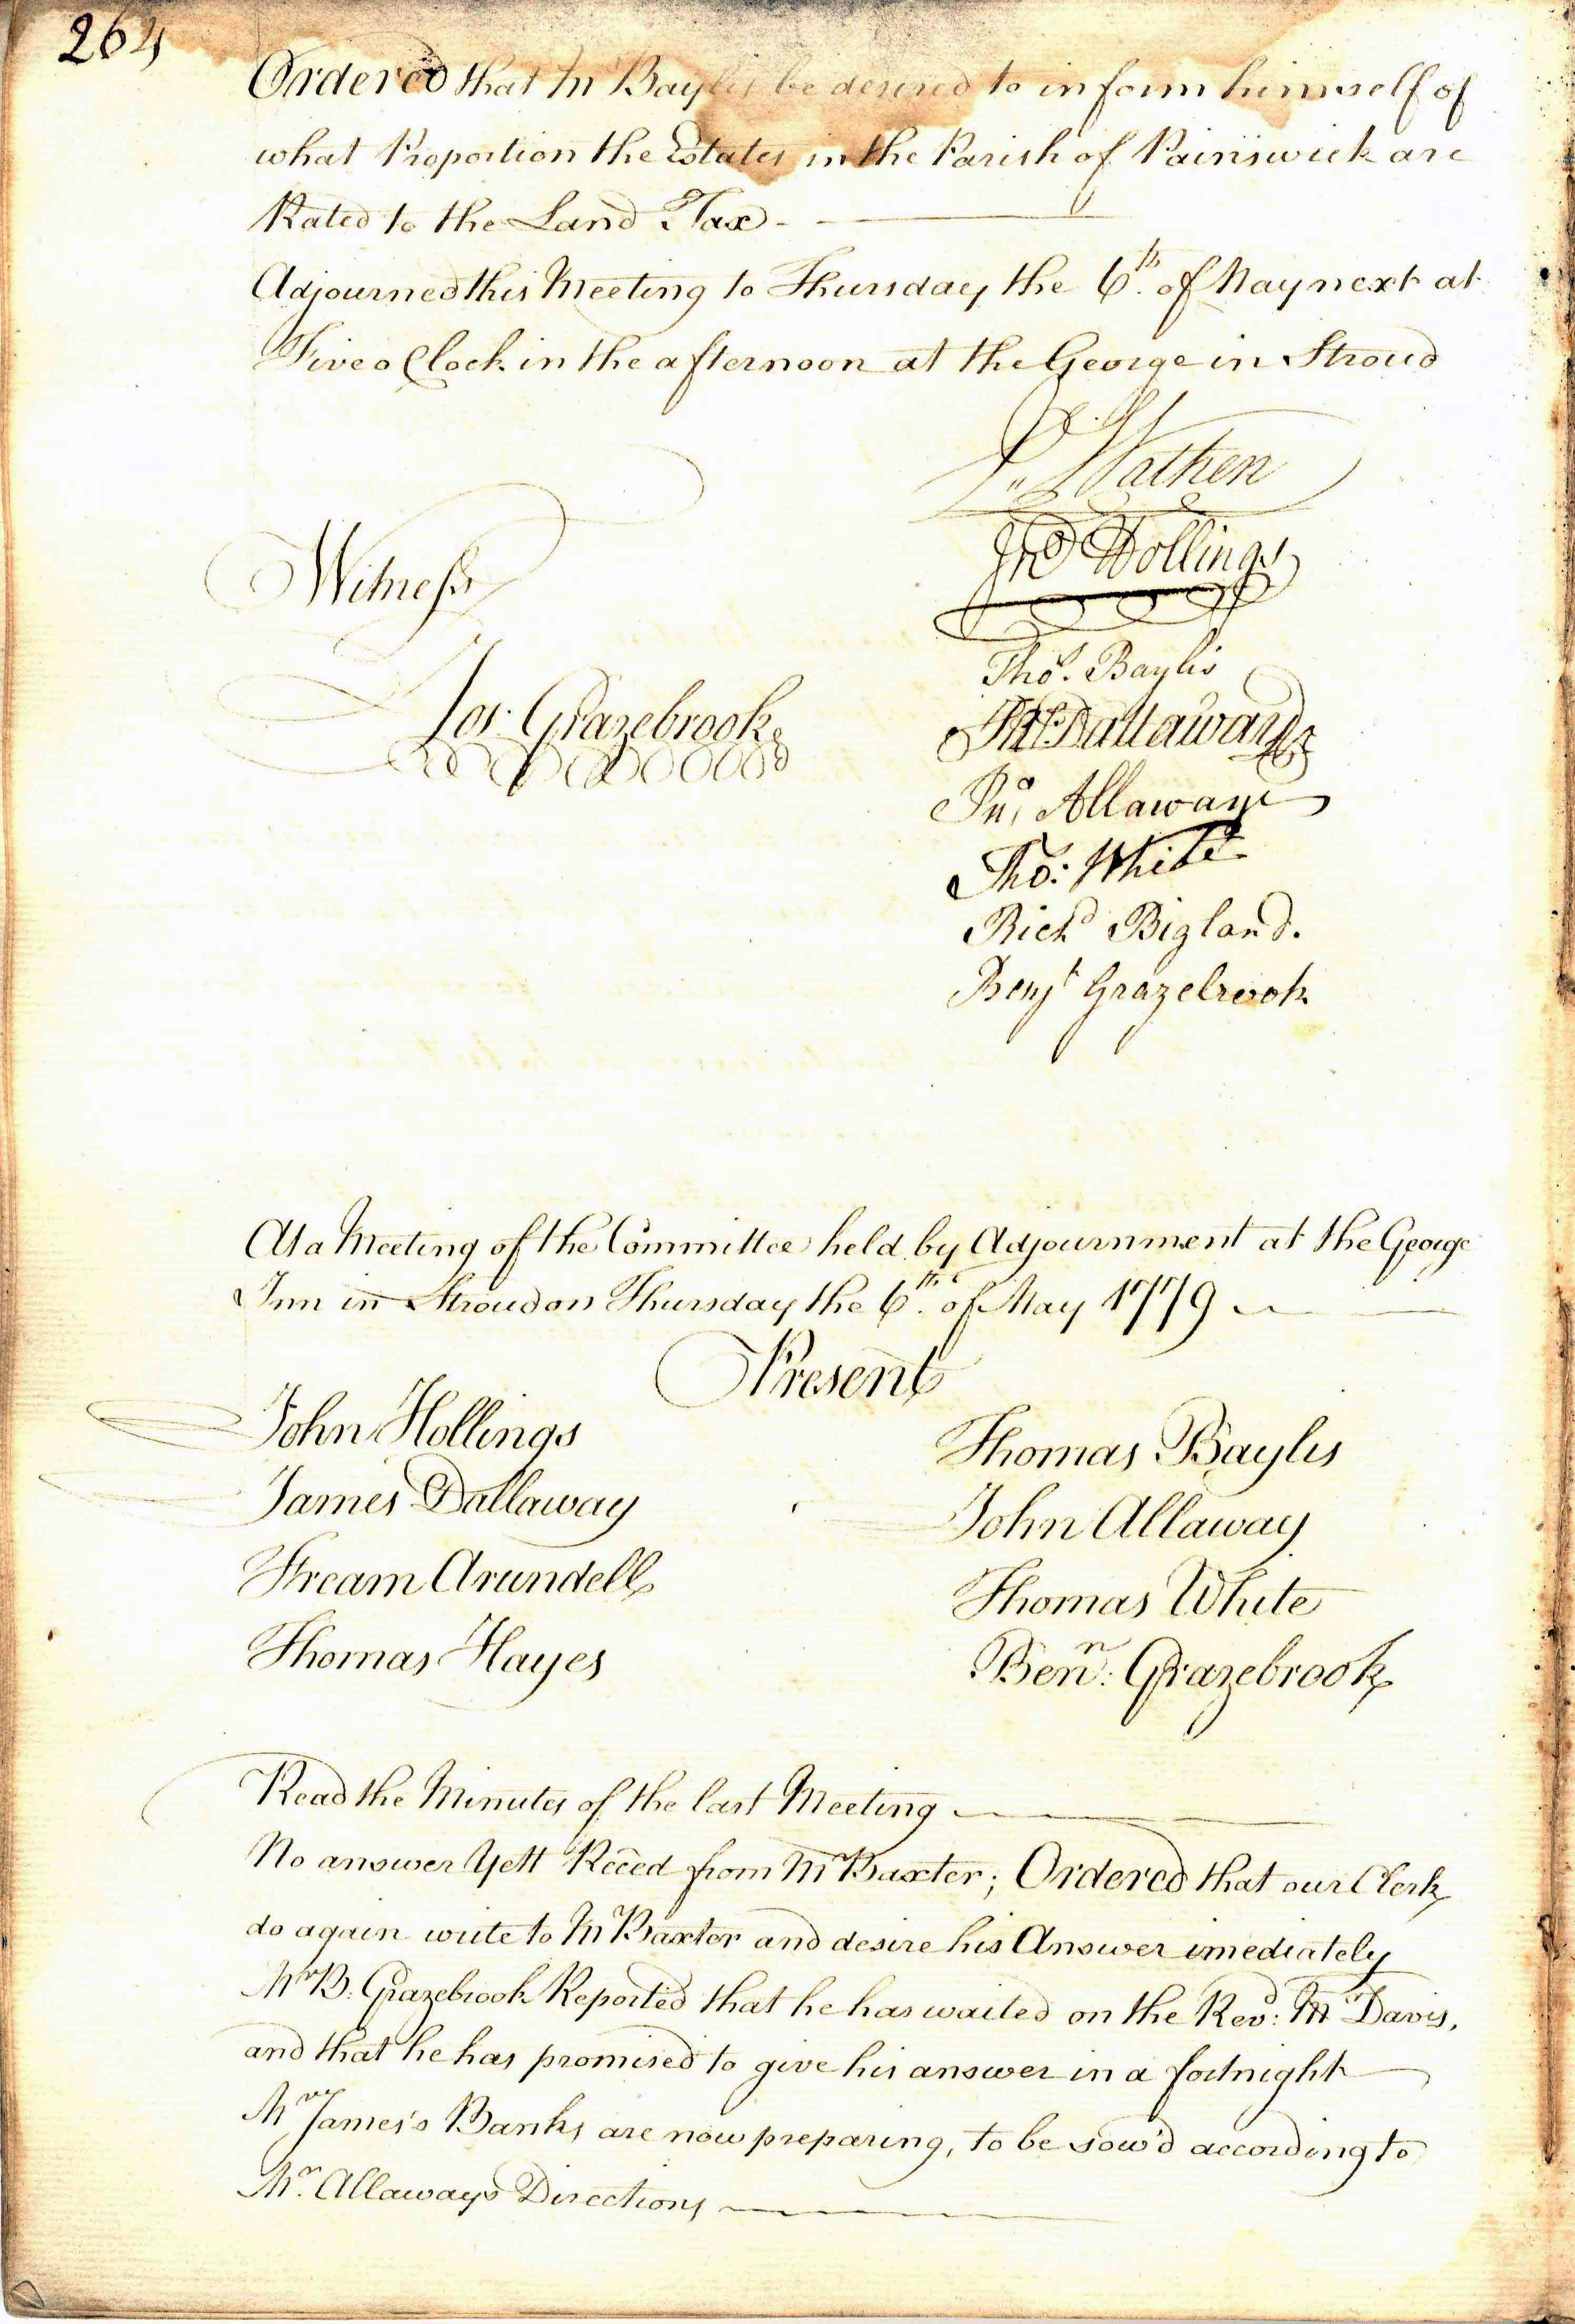 264
Ordered that Mr Baylis be desired to inform himself of
what Proportion the Estates in the Parish of Painswick are
Rated to the Land Tax
Adjourned this Meeting to Thursday the 6th. of May next at
Five o Clock in the afternoon at the George in Stroud
Wathen
Jno Hollings
Witness
Thos. Baylis
Jos. Grazebrook
Jas Dallaway
Jno Allaway
Tho: White
Richd Bigland.
Benjn Grazebrook
At a Meeting of the Committee held by Adjournment at the George
Inn in Stroud on Thursday the 6th. of May 1779
Present
John Hollings
Thomas Baylis
James Dallaway
John Allaway
Fream Arundell
Thomas White
Thomas Hayes
Benn: Grazebrook
Read the Minutes of the last Meeting
No answer Yett Reced from Mr Baxter; Ordered that our Clerk
do again write to Mr Baxter and desire his Answer imediately
Mr B. Grazebrook Reported that he has waited on the Revd: Mr Davis,
and that he has promised to give his answer in a fortnight
Mr James's Banks are now preparing, to be sow'd according to
Mr. Allaways Directions